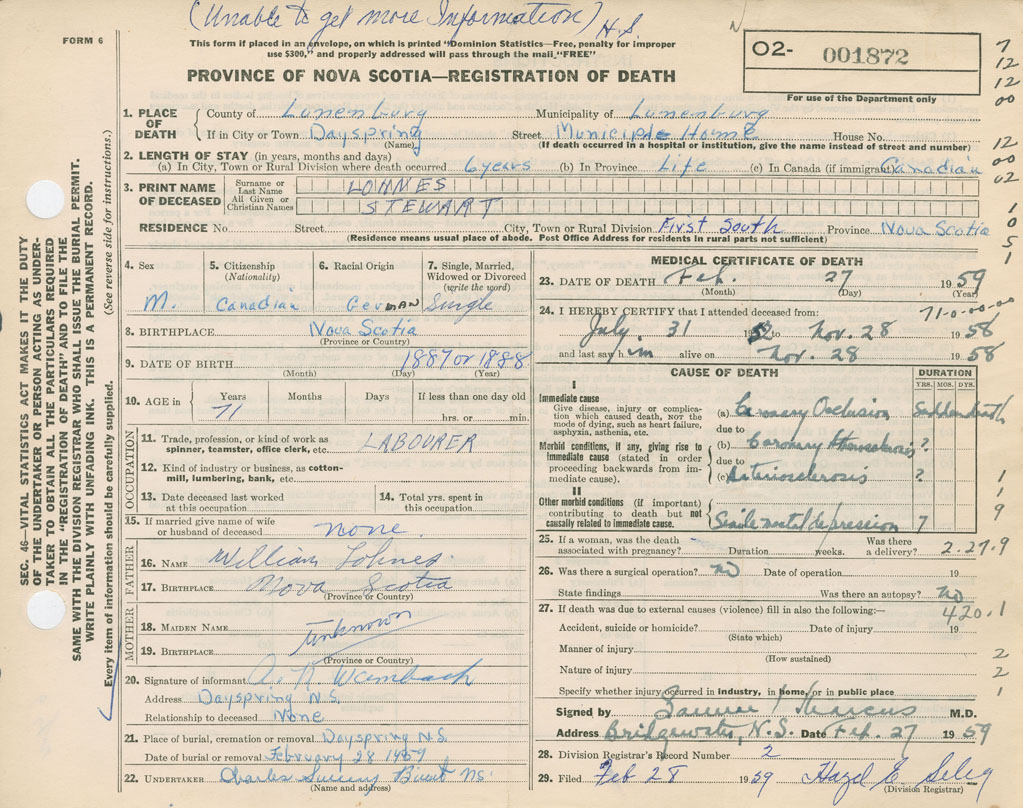 (Unable to get more Information) H.S.
FORM 6
This form if placed in an envelope, on which is printed "Dominion Statistics—Free, penalty for improper
use $300," and properly addressed will pass through the mail "FREE"
O2- 001872
For use of the Department only
PROVINCE OF NOVA SCOTIA—REGISTRATION OF DEATH
1. PLACE OF DEATH County of Lunenburg Municipality of Lunenburg
If in City or Town Dayspring Street Municiple Home House No.
(Name) (If death occurred in a hospital or institution, give the name instead of street and number)
2. LENGTH OF STAY (in years, months and days)
(a) In City, Town or Rural Division where death occurred 6 years (b) In Province Life (c) In Canada (if immigrant) Canadian
3. PRINT NAME OF DECEASED
Surname or Last Name LOHNES
All Given or Christian Names STEWART
RESIDENCE No. Street City, Town or Rural Division First South Province Nova Scotia
(Residence means usual place of abode. Post Office Address for residents in rural parts not sufficient)
4. Sex M.
5. Citizenship (Nationality) Canadian
6. Racial Origin German
7. Single, Married, Widowed or Divorced (write the word) Single
8. BIRTHPLACE Nova Scotia
(Province or Country)
9. DATE OF BIRTH 1887 or 1888
(Month) (Day) (Year)
10. AGE in Years Months Days If less than one day old
71 hrs. or min.
OCCUPATION
11. Trade, profession, or kind of work as spinner, teamster, office clerk, etc. LABOURER
12. Kind of industry or business, as cotton-mill, lumbering, bank, etc.
13. Date deceased last worked at this occupation
14. Total yrs. spent in this occupation
15. If married give name of wife or husband of deceased none
FATHER
16. NAME William Lohnes
17. BIRTHPLACE Nova Scotia
(Province or Country)
MOTHER
18. MAIDEN NAME unknown
19. BIRTHPLACE
(Province or Country)
20. Signature of informant A. R. Wambach
Address Dayspring N.S.
Relationship to deceased None
21. Place of burial, cremation or removal Dayspring N.S.
Date of burial or removal February 28 1959
22. UNDERTAKER Charles N.S.
(Name and address)
MEDICAL CERTIFICATE OF DEATH
23. DATE OF DEATH Feb. 27 1959
(Month) (Day) (Year)
24. I HEREBY CERTIFY that I attended deceased from: 71-0-00-00
July 31 1952 to Nov. 28 1958
and last saw him alive on Nov. 28 1958
CAUSE OF DEATH DURATION
YRS. MOS. DYS.
I
Immediate cause
Give disease, injury or complication which caused death, NOT the mode of dying, such as heart failure, asphyxia, asthenia, etc.
(a) Coronary Occlusion Sudden death
due to
Morbid conditions, if any, giving rise to immediate cause (stated in order proceeding backwards from immediate cause)
(b) Coronary Atherosclerosis ?
due to
(c) Arteriosclerosis ?
II
Other morbid conditions (if important) contributing to death but not causally related to immediate cause.
Senile mental depression 7
25. If a woman, was the death associated with pregnancy? Duration weeks. Was there a delivery? 2.27.9
26. Was there a surgical operation? No Date of operation 19
State findings Was there an autopsy? No
27. If death was due to external causes (violence) fill in also the following:— 420.1
Accident, suicide or homicide? Date of injury 19
(State which)
Manner of injury
(How sustained)
Nature of injury
Specify whether injury occurred in industry, in home, or in public place
Signed by Marcus M.D.
Address Bridgewater, N.S. Date Feb. 27 1959
28. Division Registrar's Record Number 2
29. Filed Feb 28 1959 Hazel E Selig
(Division Registrar)
SEC. 46—VITAL STATISTICS ACT MAKES IT THE DUTY
OF THE UNDERTAKER OR PERSON ACTING AS UNDER-
TAKER TO OBTAIN ALL THE PARTICULARS REQUIRED
IN THE "REGISTRATION OF DEATH" AND TO FILE THE
SAME WITH THE DIVISION REGISTRAR WHO SHALL ISSUE THE BURIAL PERMIT.
WRITE PLAINLY WITH UNFADING INK. THIS IS A PERMANENT RECORD.
Every item of information should be carefully supplied. (See reverse side for instructions.)
7
12
12
00
12
00
02
1
0
5
1
1
1
9
2
2
1